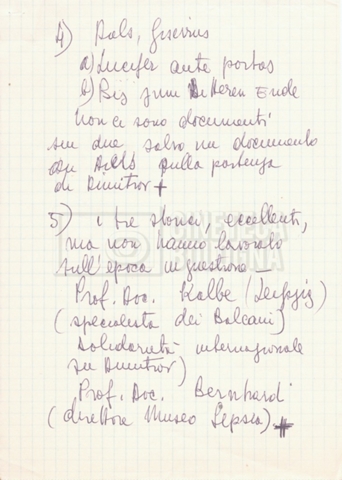 4) Dals, Gisevius
a) Lucifer ante portas
b) Bis zum Bitteren Ende
Non ci sono documenti
su due salvo un documento
di Dials sulla partenza
di Dimitrov +
5) i tre storici, eccellenti,
ma non hanno lavorato
sull'epoca in questione –
Prof. Doc. Kalbe (Leipzig)
(specialista dei Balcani)
Solidarietà internazionale
su Dimitrov)
Prof. Doc. Bernhard
(direttore Museo Lipsia) +
CINETECA
BOLOGNA